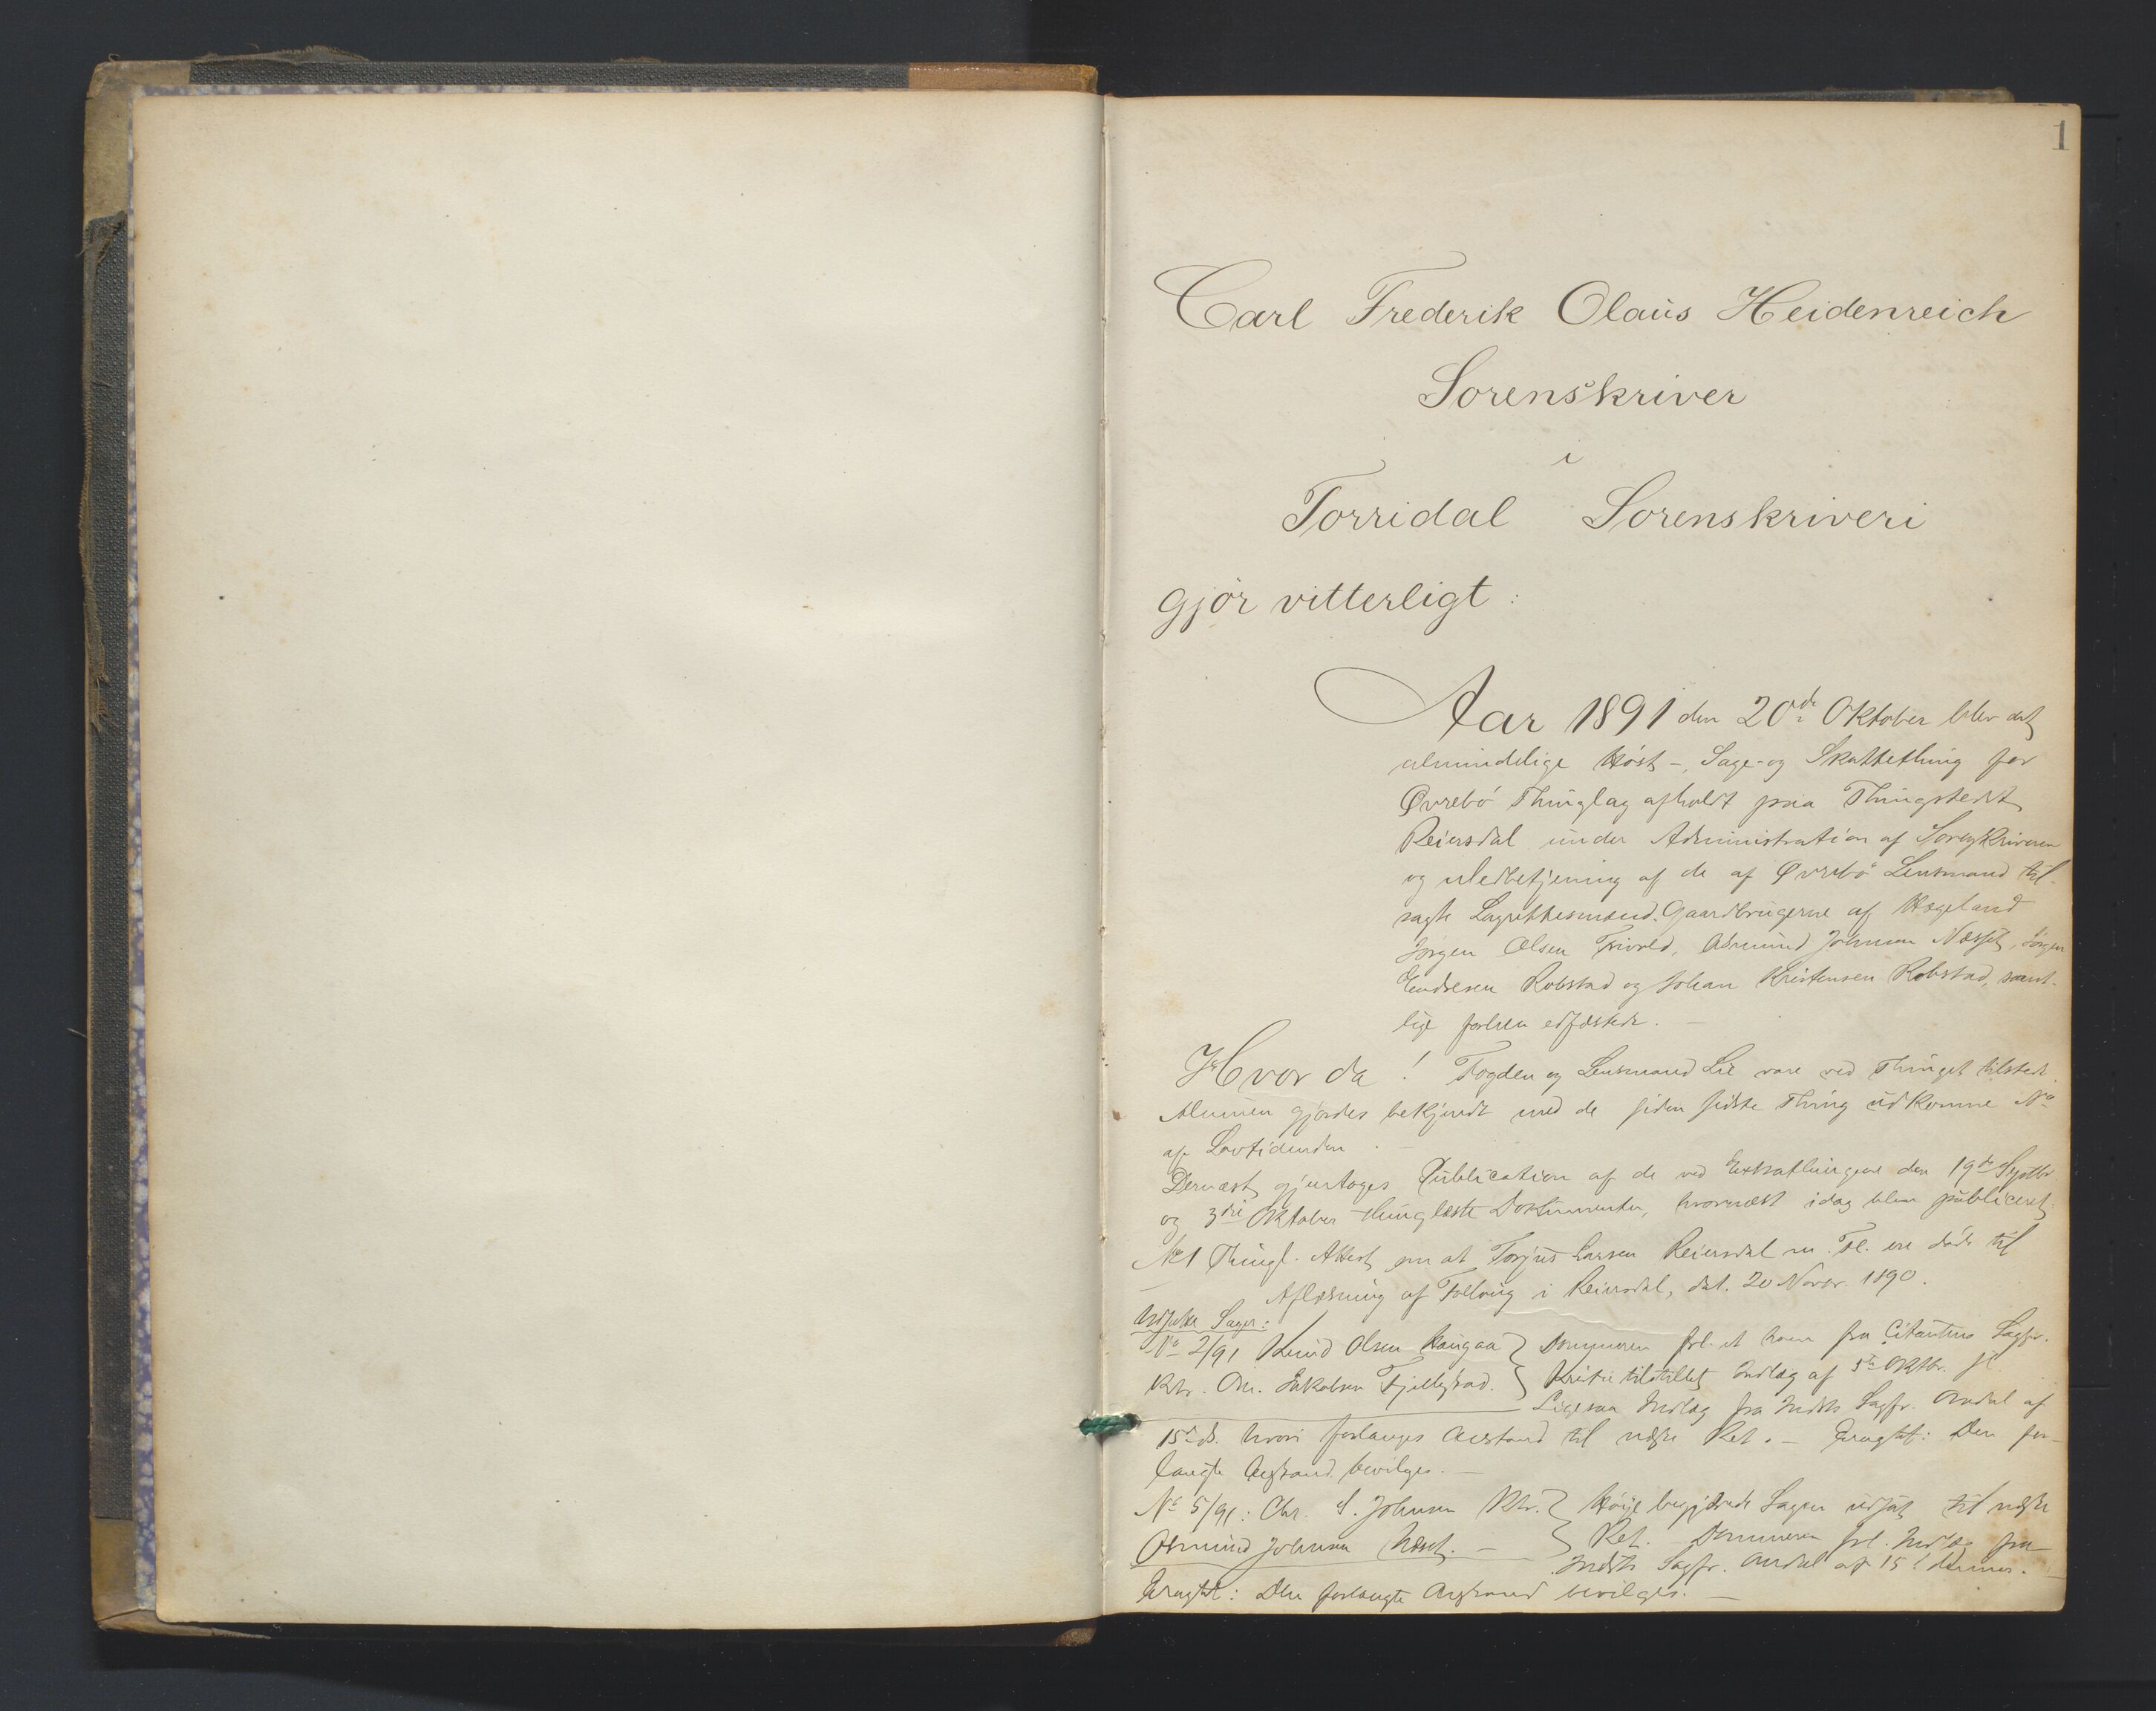 1
Carl Frederik Olaus Heidenreich
Sorenskriver
i
Torridal Sorenskriveri
gjør vitterligt:
Aar 1891 den 20de Oktober blev det
almindelige Høst-, Sage- og Skattething for
Øvrebø Thinglag afholdt paa Thingstedet
Reiersdal under Administration af Sorenskriveren
og Medbetjening af de af Øvrebø Lensmand til-
sagte Lagrettesmænd. Gaardbrugerne af Hægeland
Jørgen Olsen Asmund Johnsen Jørgen
Endresen Robstad og Johan Kristensen Robstad, samt-
lige forhen edfæstede. -
Hvor da! Fogden og Lensmand Lie vare ved Thinget tilstede.
Almuen gjordes bekjendt med de siden sidste Thing udkomne No
af Lovtidenden. -
Dernæst gjentoges Publication af de ved Extrathingene den 19de Septbr
og 3die Oktober thinglæste Dokumenter, hvornæst idag blev publiceret
No 1 Thingl. Attest om at Torjus Larsen Reiersdal m. Fl. ere døde til
Afløsning af i Reiersdal, dat. 20 Novbr. 1890.
Udsatte Sager:
No 2/91 Knud Olsen Haugaa } Dommeren frl. et ham fra Citantens Sagfr.
Ktr. Jakobsen Fjellestad. } tilstillet Indlæg af 5te Oktbr.
Ligesaa Indlæg fra Indst. Sagfr. af
15de ds. hvori forlanges Anstand til næste Ret. - Eragtet: Den for-
langte Anstand bevilges. -
No 5/91: Chr. S. Johnsen Ktr. } begjærede Sagen udsat til næste
Asmund Johnsen - } Ret. - Dommeren frl. Indlæg fra
Indst. Sagfr. af 15
Eragtet: Den forlangte Anstand bevilges. -